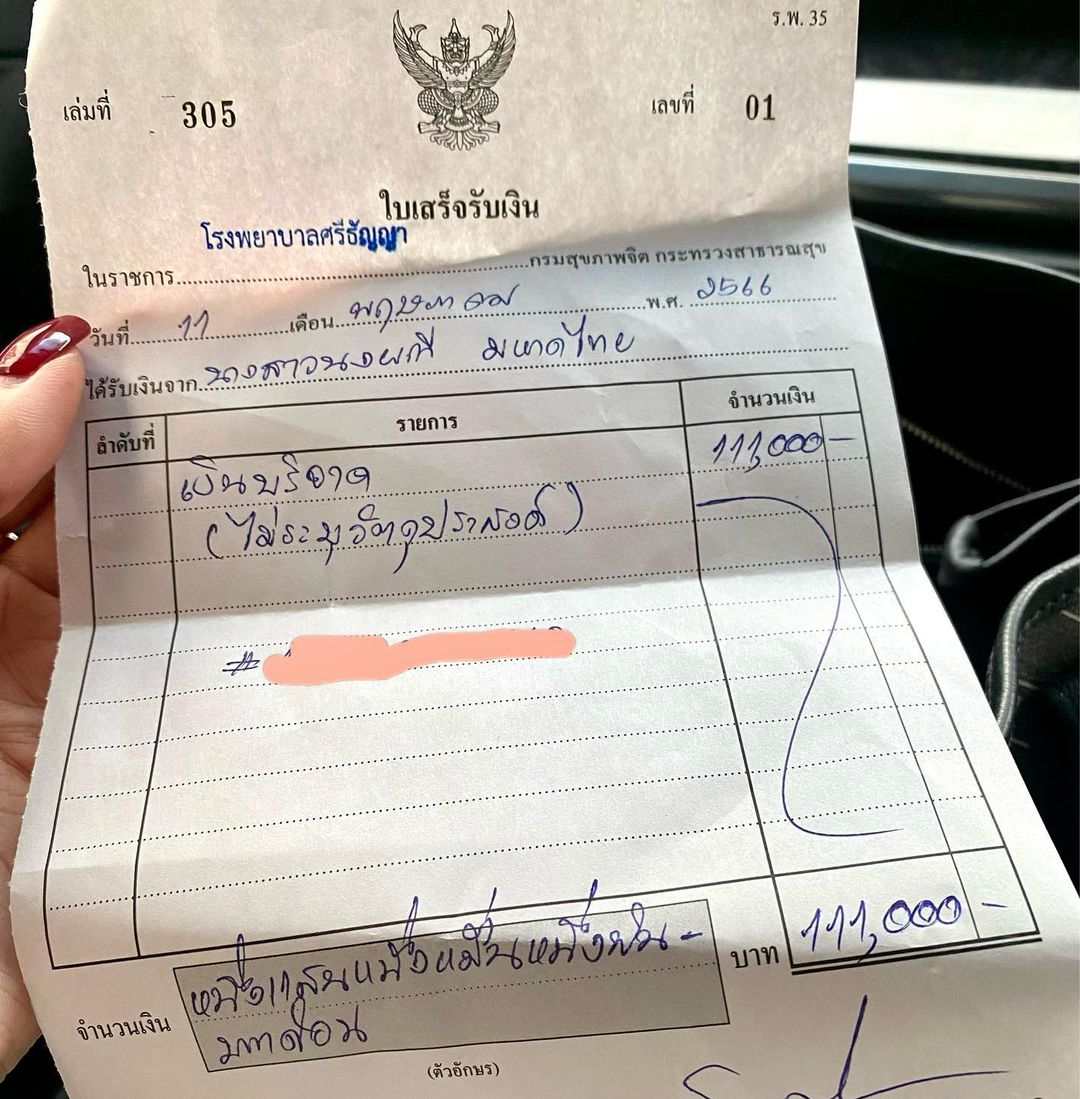 ร.พ. 35
เล่มที่ 305 เลขที่ 01
ใบเสร็จรับเงิน
โรงพยาบาลศรีธัญญา
ในราชการ กรมสุขภาพจิต กระทรวงสาธารณสุข
วันที่ 11 เดือน พฤษภาคม พ.ศ. 2566
ได้รับเงินจาก นางสาวนงผณี มหาดไทย
ลำดับที่ รายการ จำนวนเงิน
เงินบริจาค 111,000 -
(ไม่ระบุวัตถุประสงค์)
#
บาท 111,000 -
จำนวนเงิน หนึ่งแสนหนึ่งหมื่นหนึ่งพัน-
บาทถ้วน
(ตัวอักษร)